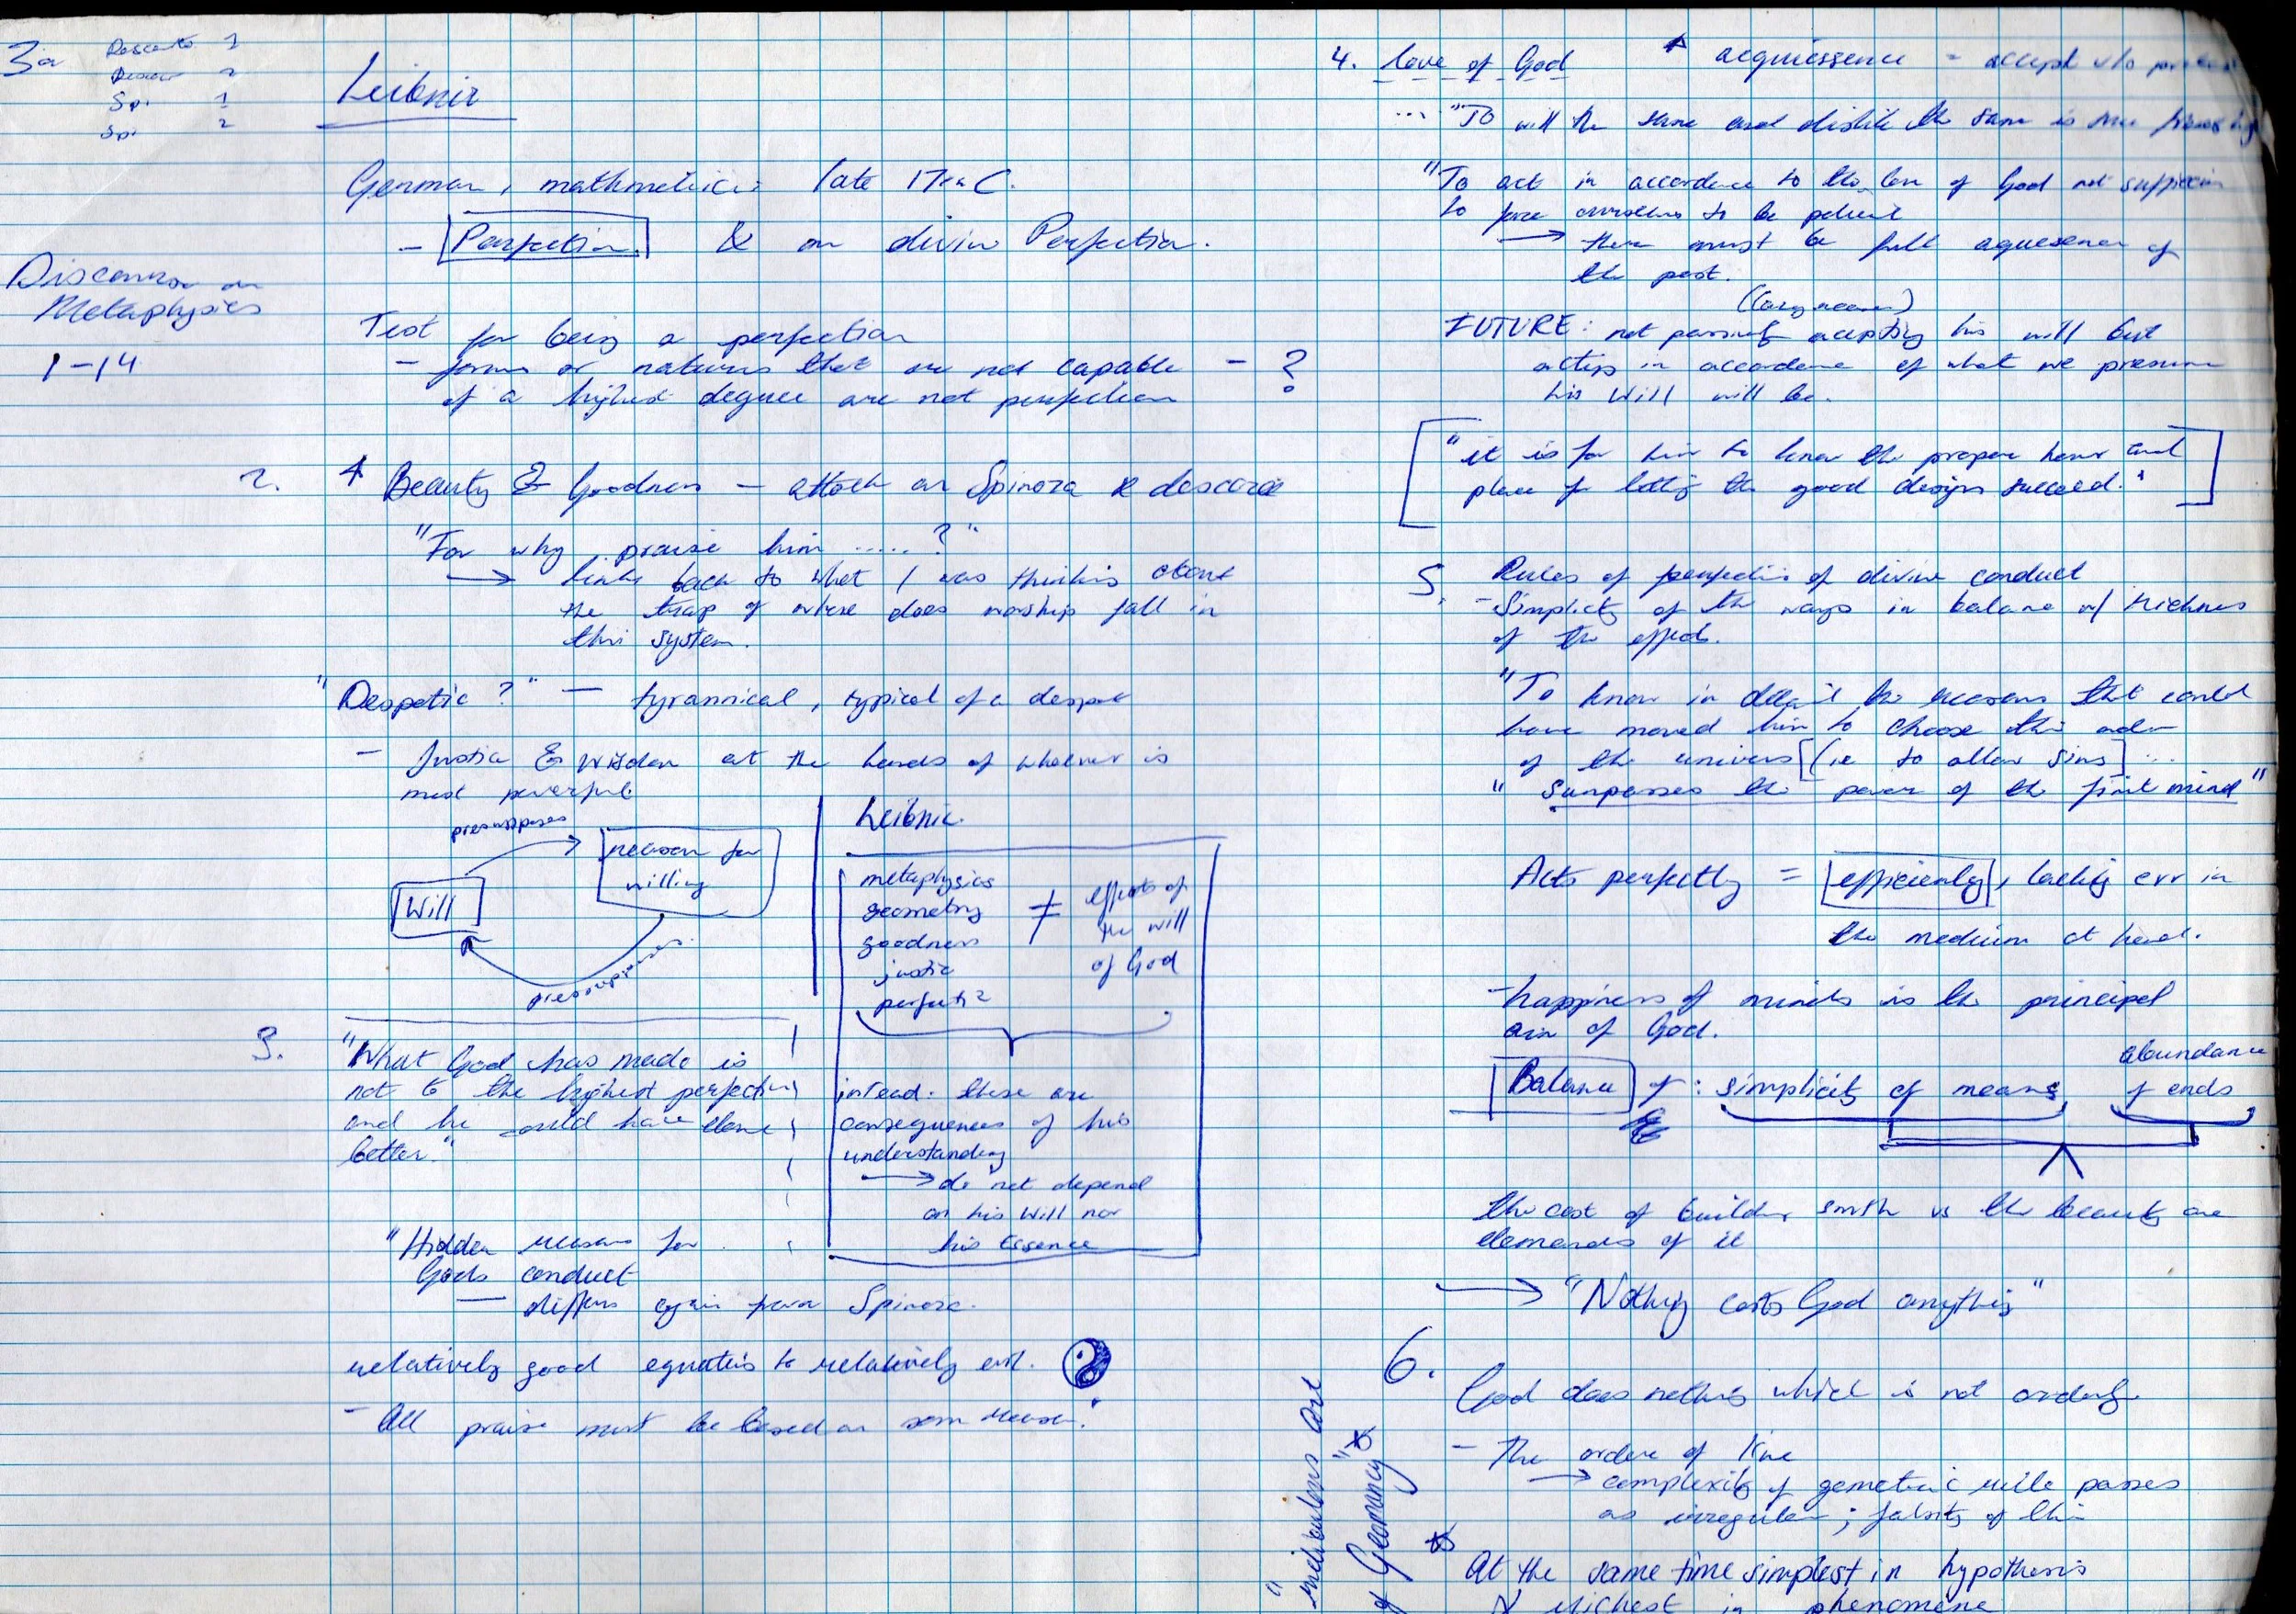 3a
Descartes 1
Descar 2
Sp. 1
Sp. 2
Leibniz
German, mathmetici: late 17th C.
- Perfection & on divin Perfection.
Discourse on
Metaphysics
1-14
Test for being a perfection
- forms or natures that are not capable - ?
of a highest degree are not perfection
2. Beauty & Goodness - attack on Spinoza &
"For why praise him ..... ?"
→ links back to what I was thinking about
the of where does worship fall in
this system.
"Despotic ?" — tyrannical, typical of a despot
- Justice & Wisdom at the hands of whoever is
most powerful
presupposes
reason for
willing
Will
presupposes
Leibnic.
metaphysics
geometry
goodness
justic
perfecti
≠
effects of
the will
of God
instead: these are
consequences of his
understanding
→ do not depend
on his will nor
his Essence
3. "What God has made is
not to the highest perfection
and he could have done
better."
"Hidden reasons for
Gods conduct
— differs again from Spinoza.
relatively good equates to relatively evil.
- All praise must be based on som reason."
4. love of God acquiessence = accept w/o
... "To will the same and dislike the same is true
"To act in accordance to the love of God not
to force ourselves to be patient
→ there must be full aquesence of
the past.
FUTURE: not passively accepting his will but
acting in accordance of what we presume
his Will will be.
"it is for him to know the proper hour and
place for letting the good designs succeed."
5. Rules of perfection of divine conduct
- Simplicity of the ways in balance w/ richness
of the effects.
"To know in detail the reasons that could
have moved him to choose this order
of the univers [(ie to allow sins] ...
" Surpasses the power of the finit mind"
Acts perfectly = efficiently, lacking err in
the medium at hand.
- happiness of minds is the principal
aim of God.
Balance of: simplicity of means, abundance
of ends
the cost of building smth vs the beauty one
demands of it
→ "Nothing costs God anything"
"mirabulous art
of Geomancy"
6.
God does nothing which is not orderly
- The order of line
→ complexity of gemetric rule passes
as irregular; falsity of this
At the same time simplest in hypothesis
& richest in phenomena